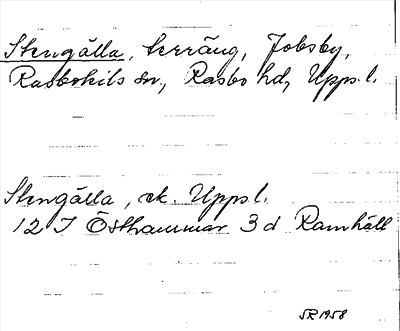 Stengälla, terräng, Jobsby,
Rasbokils sn, Rasbo hd, Upps.l.
Stengälla, ek. Upps l.
12 I Östhammar 3 d Ramhäll
SR 1958